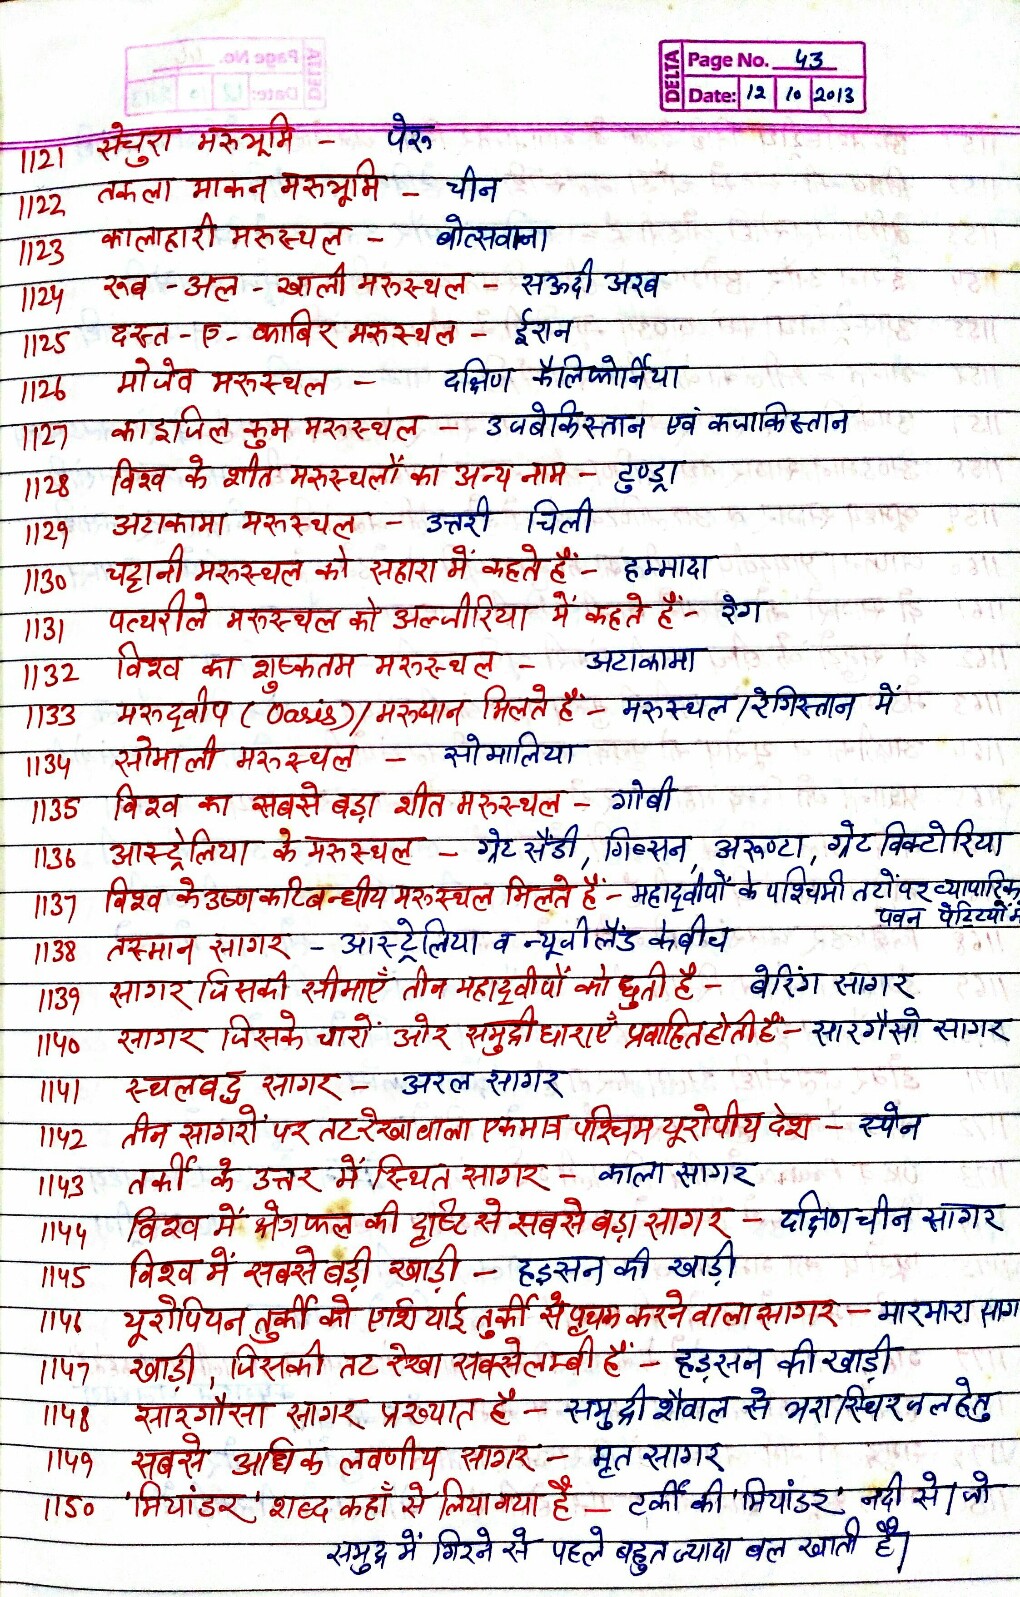 DELTA
Page No. 43
Date: 12 10 2013
1121 सेचुरा मरुभूमि - पेरू
1122 तकला माकन मरुभूमि - चीन
1123 कालाहारी मरुस्थल - बोत्सवाना
1124 रूब - अल - खाली मरुस्थल - सऊदी अरब
1125 दस्त - ए - काबिर मरुस्थल - ईरान
1126 मोजेव मरुस्थल - दक्षिण कैलिफोर्निया
1127 काइजिल कुम मरुस्थल - उजबेकिस्तान एवं कजाकिस्तान
1128 विश्व के शीत मरुस्थलों का अन्य नाम - टुण्ड्रा
1129 अटाकामा मरुस्थल - उत्तरी चिली
1130 चट्टानी मरुस्थल को सहारा में कहते हैं - हम्मादा
1131 पत्थरीले मरुस्थल को अल्जीरिया में कहते हैं - रेग
1132 विश्व का शुष्कतम मरुस्थल - अटाकामा
1133 मरुद्वीप (Oasis)/मरुद्यान मिलते हैं - मरुस्थल/रेगिस्तान में
1134 सोमाली मरुस्थल - सोमालिया
1135 विश्व का सबसे बड़ा शीत मरुस्थल - गोबी
1136 आस्ट्रेलिया के मरुस्थल - ग्रेट सैंडी, गिब्सन, अरुण्टा, ग्रेट विक्टोरिया
1137 विश्व के उष्ण कटिबन्धीय मरुस्थल मिलते हैं - महाद्वीपों के पश्चिमी तटों पर व्यापारिक
पवन पेटिट्यों में
1138 तस्मान सागर - आस्ट्रेलिया व न्यूजीलैंड के बीच
1139 सागर जिसकी सीमाएँ तीन महाद्वीपों को छुती है - बेरिंग सागर
1140 सागर जिसके चारों ओर समुद्री धाराएँ प्रवाहित होती हैं - सारगैसो सागर
1141 स्थलबद्ध सागर - अरल सागर
1142 तीन सागरों पर तटरेखा वाला एकमात्र पश्चिम यूरोपीय देश - स्पेन
1143 तर्की के उत्तर में स्थित सागर - काला सागर
1144 विश्व में क्षेत्रफल की दृष्टि से सबसे बड़ा सागर - दक्षिण चीन सागर
1145 विश्व में सबसे बड़ी खाड़ी - हडसन की खाड़ी
1146 यूरोपियन तुर्की को एशियाई तुर्की से पृथक करने वाला सागर - मारमारा साग
1147 खाड़ी, जिसकी तट रेखा सबसे लम्बी हैं - हड़सन की खाड़ी
1148 सारगौसा सागर प्रख्यात है - समुद्री शैवाल से भरा स्थिर जल हेतु
1149 सबसे अधिक लवणीय सागर - मृत सागर
1150 'मियांडर' शब्द कहाँ से लिया गया है - टर्की की 'मियांडर' नदी से। जो
समुद्र में गिरने से पहले बहुत ज्यादा बल खाती है।